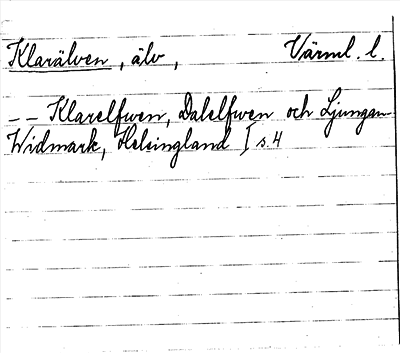 Klarälven, älv, Värml. l.
– – Klarelfwen, Dalelfwen och Ljungan
Widmark, Helsingland I s. 4